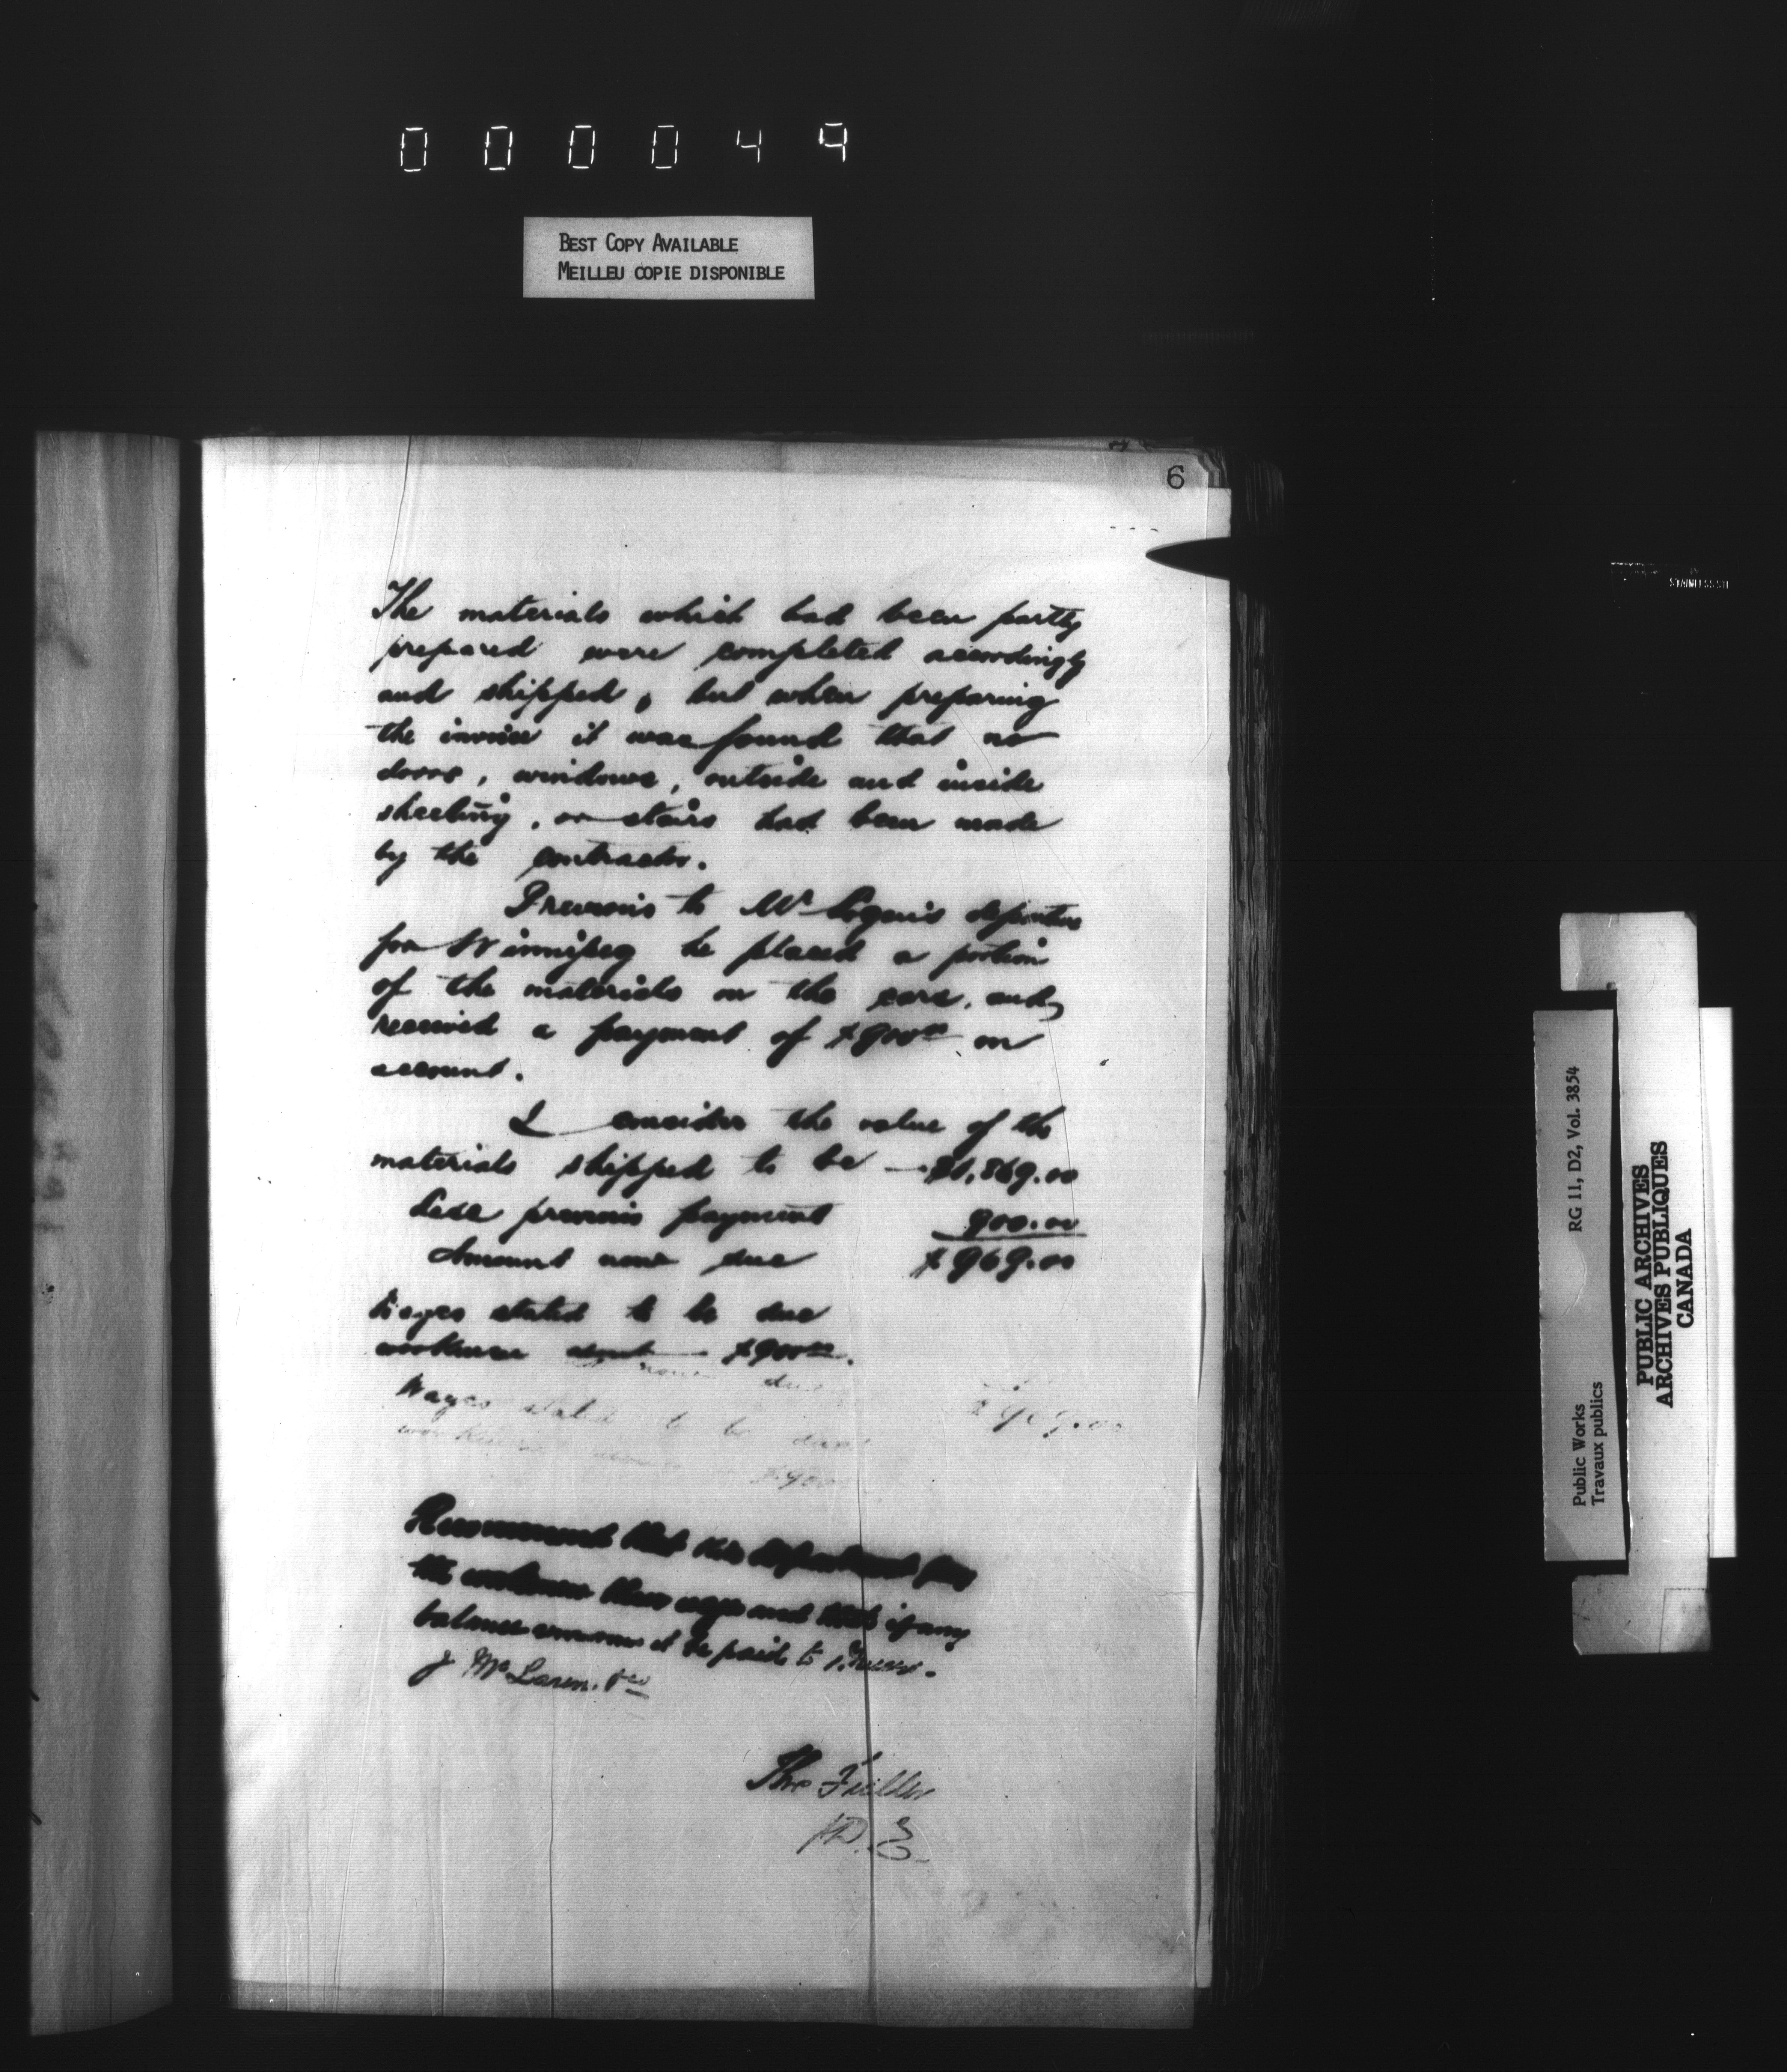 000049
BEST COPY AVAILABLE
MEILLEU COPIE DISPONIBLE
6
The materials which had been partly
prepared were completed accordingly
and shipped, but when preparing
the invoice it was found that no
doors, windows, outside and inside
sheeting, or stairs had been made
by the contractor.
Previous to Mr departure
for Winnipeg he placed a portion
of the materials on the cars, and
received a payment of $900.00 on
account.
I consider the value of the
materials shipped to be — $1,869.00
Less previous payment 900.00
Amount now due $969.00
Wages stated to be due
workmen about $900.00.
now due $969.00
Wages stated to be due
workmen $900
Recommend that this department pay
the workmen their wages and that if any
balance remains it be paid to
J McLaren. &co
Tho Fuller
D.E.
STAINLESS
RG 11, D2, Vol. 3854
Public Works
Travaux publics
PUBLIC ARCHIVES
ARCHIVES PUBLIQUES
CANADA